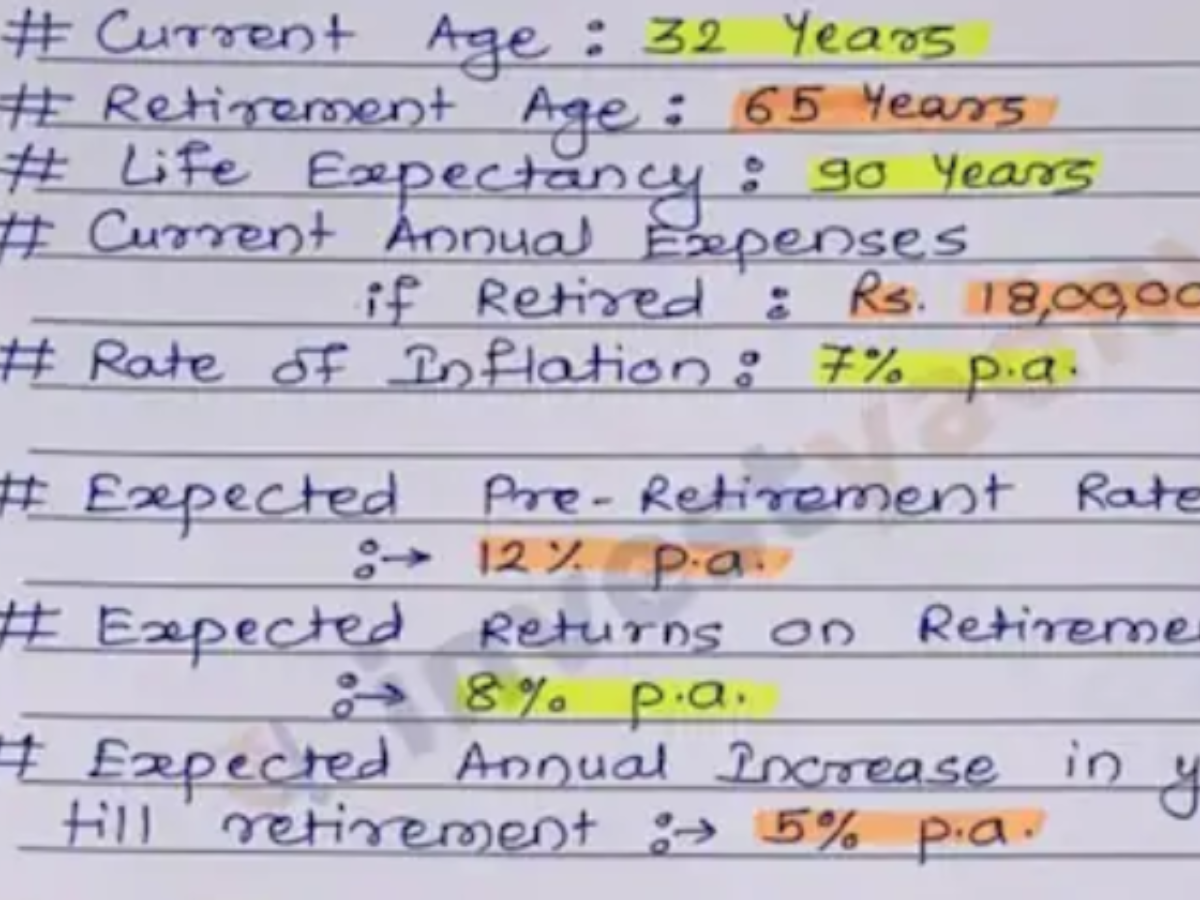 # Current Age : 32 Years
# Retirement Age : 65 Years
# Life Expectancy : 90 Years
# Current Annual Expenses
if Retired : Rs. 18,00,00
# Rate of Inflation : 7% p.a.
# Expected Pre-Retirement Rate
:→ 12% p.a.
# Expected Returns on Retireme
:→ 8% p.a.
# Expected Annual Increase in y
till retirement :→ 5% p.a.